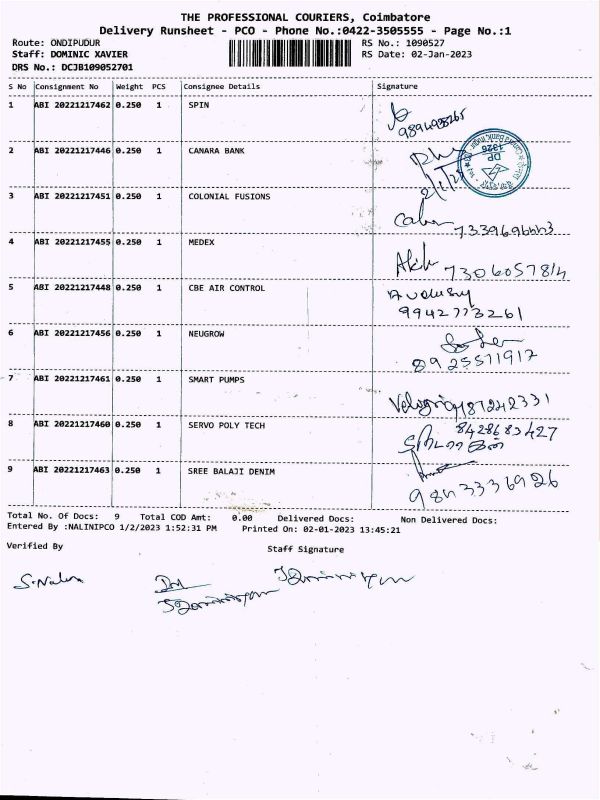 THE PROFESSIONAL COURIERS, Coimbatore
Delivery Runsheet - PCO - Phone No.:0422-3505555 - Page No.:1
Route: ONDIPUDUR RS No.: 1090527
Staff: DOMINIC XAVIER RS Date: 02-Jan-2023
DRS No.: DCJB109052701
S No Consignment No Weight PCS Consignee Details Signature
1 ABI 20221217462 0.250 1 SPIN
9894938265
2 ABI 20221217446 0.250 1 CANARA BANK
3 ABI 20221217451 0.250 1 COLONIAL FUSIONS
4 ABI 20221217455 0.250 1 MEDEX
7306057814
5 ABI 20221217448 0.250 1 CBE AIR CONTROL
9942773261
6 ABI 20221217456 0.250 1 NEUGROW
8925511917
7 ABI 20221217461 0.250 1 SMART PUMPS
8 ABI 20221217460 0.250 1 SERVO POLY TECH
8428683427
9 ABI 20221217463 0.250 1 SREE BALAJI DENIM
Total No. Of Docs: 9 Total COD Amt: 0.00 Delivered Docs: Non Delivered Docs:
Entered By :NALINIPCO 1/2/2023 1:52:31 PM Printed On: 02-01-2023 13:45:21
Verified By Staff Signature